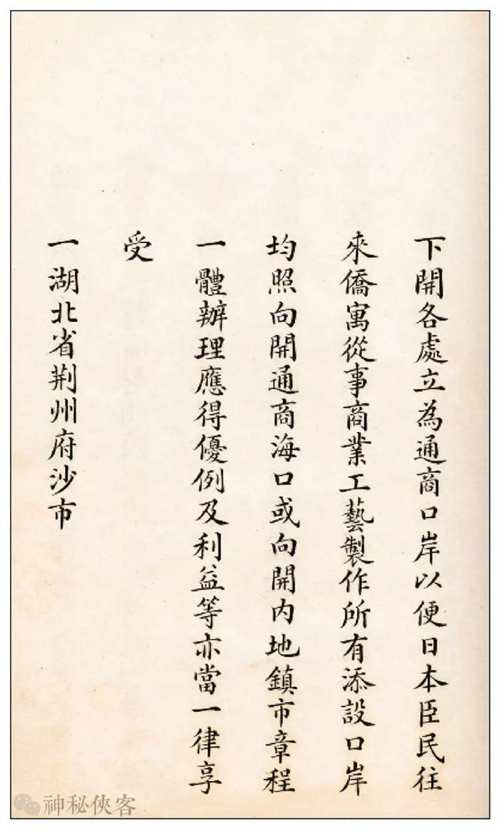 下開各處立為通商口岸以便日本臣民往
來僑寓從事商業工藝製作所有添設口岸
均照向開通商海口或向開內地鎮市章程
一體辦理應得優例及利益等亦當一律享
受
一湖北省荆州府沙市
神秘侠客